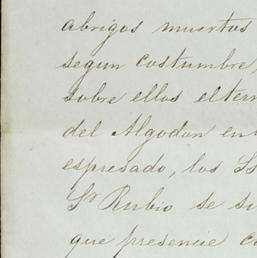 abrigos muertos
segun costumbre,
sobre ellos el
del Algodon en
espresado, los
Sr Rubio se
que presencie